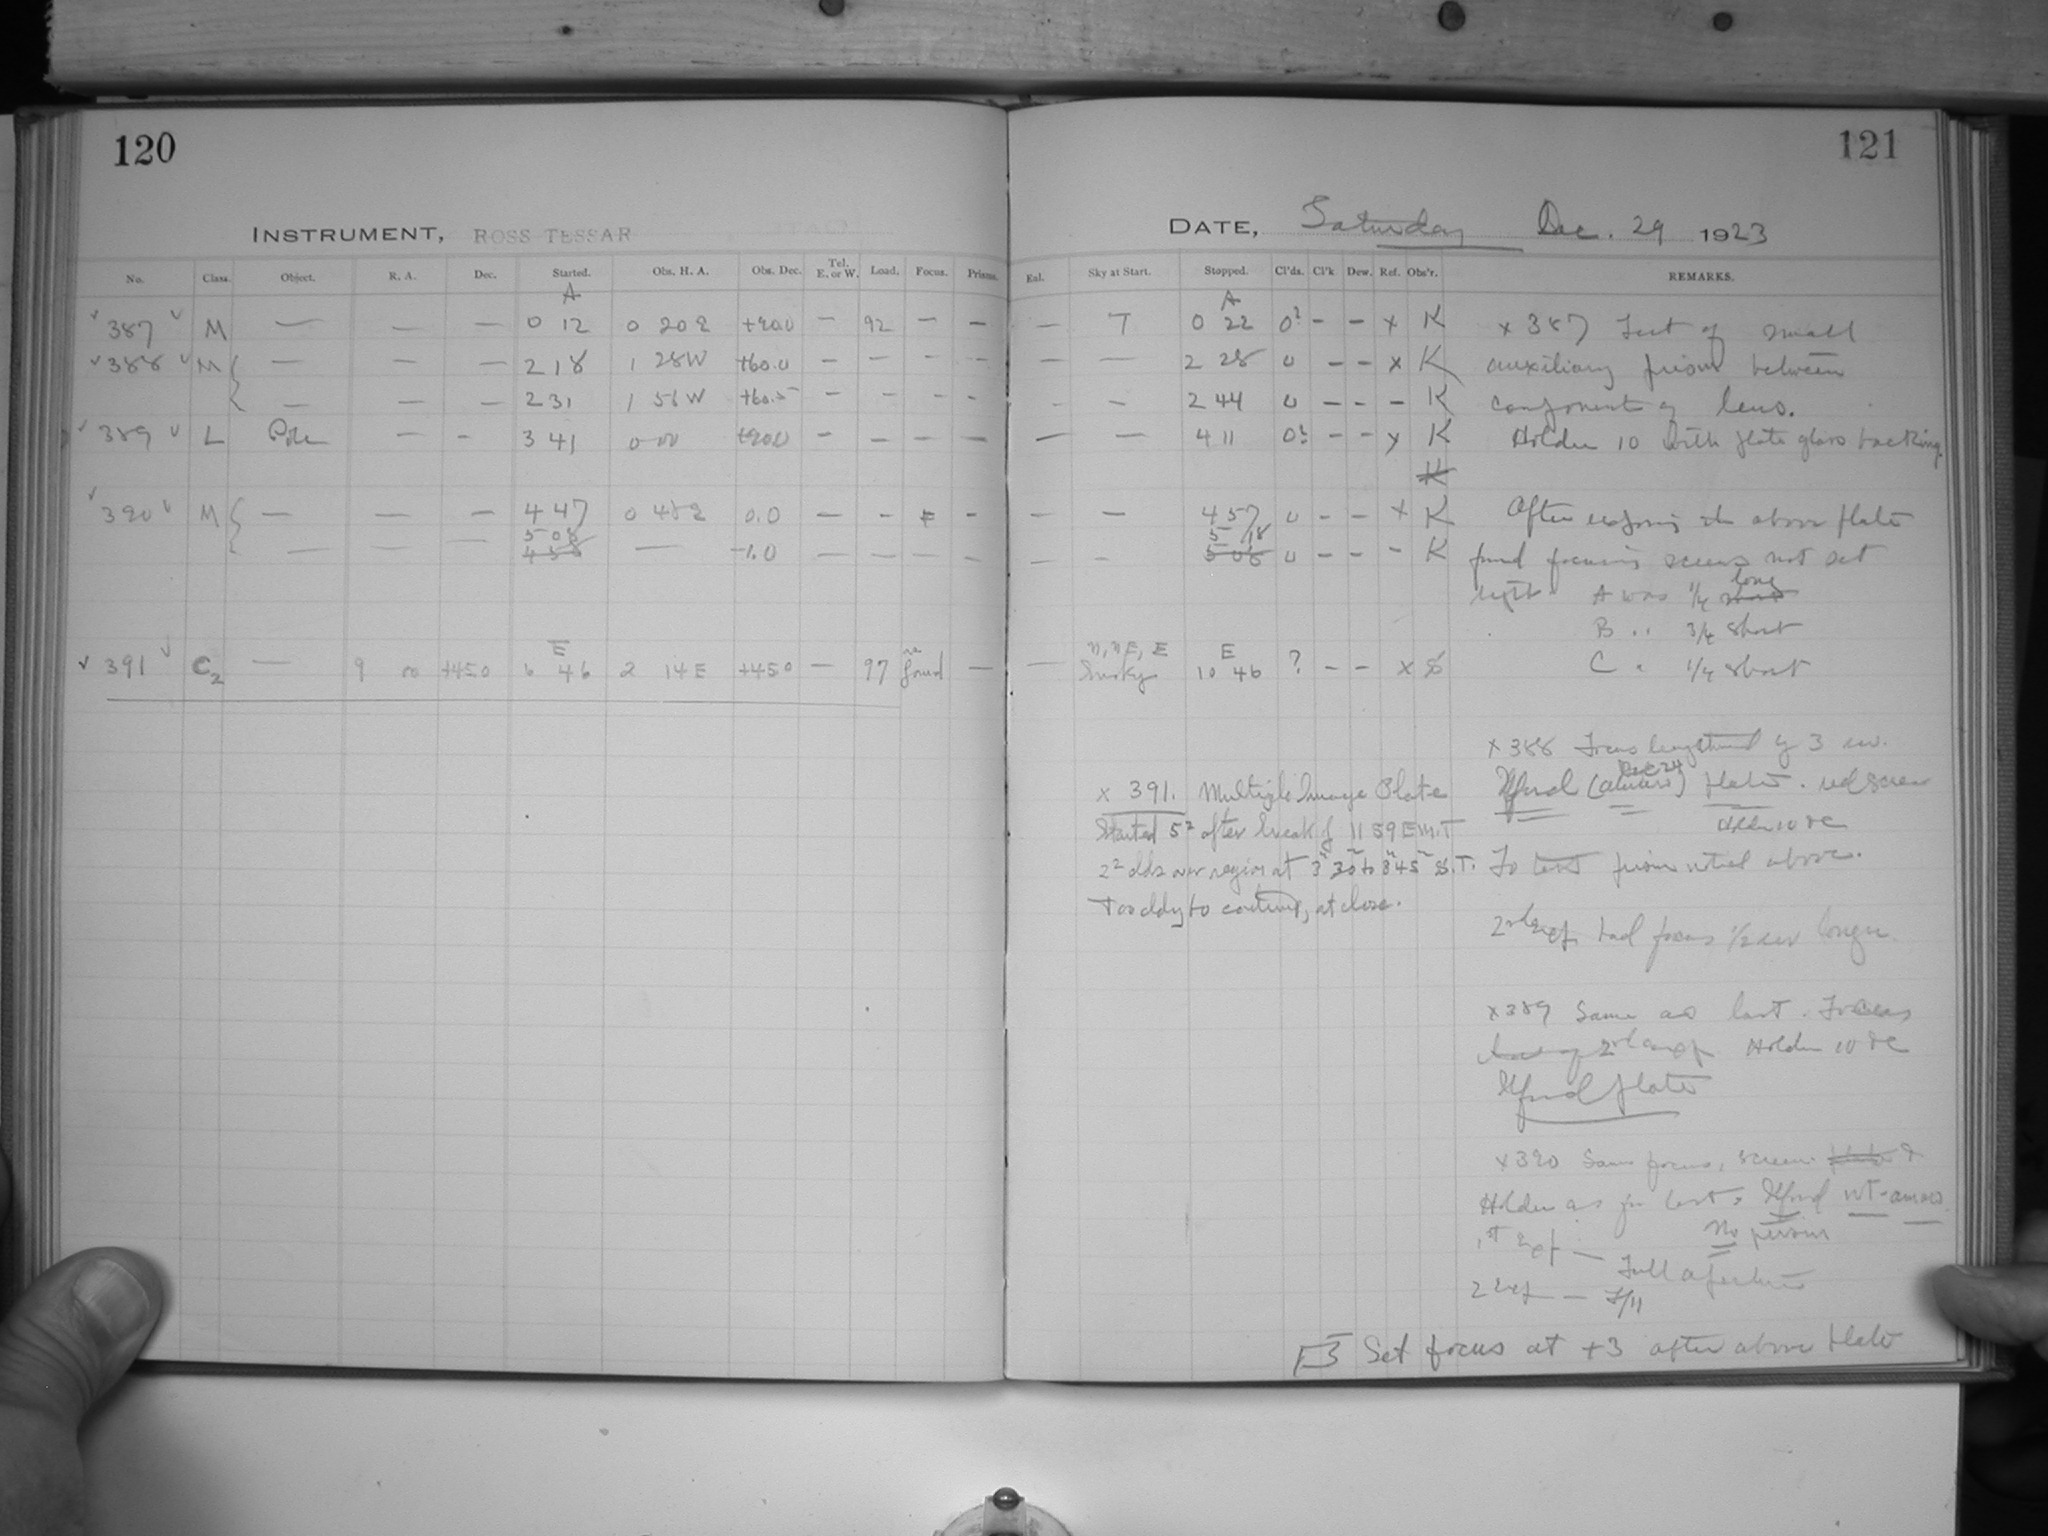 120
121
INSTRUMENT, ROSS TESSAR
DATE, Saturday Dec. 29 1923
No. Class. Object. R. A. Dec. Started. Obs. H. A. Obs. Dec. Tel. E. or W. Load. Focus. Prisms. Eul. Sky at Start. Stopped. Cl'ds. Cl'k Dew. Ref. Obs'r. REMARKS.
A A
387 M — — — 0 12 0 20 +90.0 — 92 — — — T 0 22 0? — — x K x 387 Test of small
388 M — — — 2 18 1 28W +60.0 — — — — — — 2 28 0 — — x K auxiliary prism between
— — — 2 31 1 56W +60.5 — — — — — — 2 44 0 — — — K component of lens.
389 L Pole — — 3 41 0 00 +90.0 — — — — — — 4 11 0? — — x K Holder 10 with plate glass backing.
K
390 M — — — 4 47 0 48 0.0 — — F — — — 4 57 0 — — x K After the above plate
5 08 5 18
— — — 4 58 — -1.0 — — — — — — 5 08 0 — — — K found focusing screws not set
right A was 1/4 short long
B .. 3/4 short
C " 1/4 short
E N, NE, E E
391 C2 — 9 00 +45.0 6 46 2 14E +45.0 — 97 as found — — Smoky 10 46 ? — — x
x 388 Focus lengthened by 3 rev.
x 391. Multiple Image Plate
Dec 24
Ilford plate. red screen
Started 5 after break of 11 59 E.M.T
Holder 10 &c
region at 3 30 to 3 45 S.T.
To test prism noted above.
Too cldy to continue, at close.
2nd exp. had focus 1/2 rev longer.
x 389 Same as last. Focus
that of 2nd exp Holder 10 &c
Ilford plate
x 390 Same focus, screen plate &
Holder as for last. Ilford
No prism
1st exp — Full aperture
2 exp — F/11
Set focus at +3 after above plate